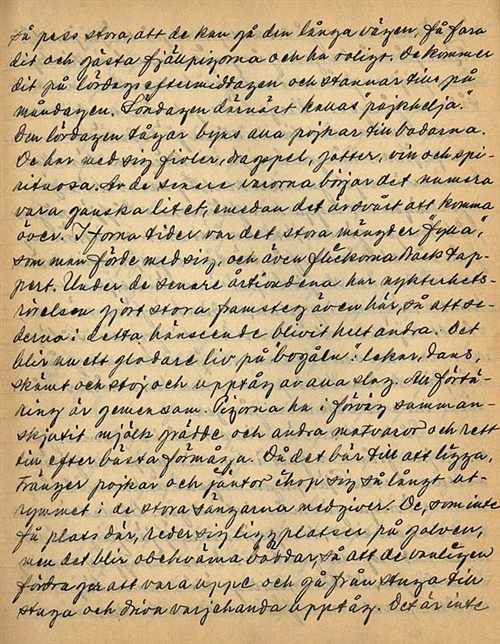 så pass stora, att de kan gå den långa vägen, få fara
dit och gästa fjällpigorna och ha roligt. De kommer
dit på lördagseftermiddagen och stannar till på
måndagen. Söndagen därnäst kallas "pojkhelja".
Den lördagen tågar byns alla pojkar till bodarna.
De har med sig fioler, dragspel, jätter, vin och spi-
rituosa. Av de senare varorna börjar det numera
vara ganska litet, emedan det är svårt att komma
över. I forna tider var det stora mängder "fylla",
som man förde med sig, och även flickorna drack tap-
pert. Under de senare årtiondena har nykterhets-
rörelsen gjort stora framsteg även här, så att se-
derna i detta hänseende blivit helt andra. Det
blir nu ett gladare liv på "bogåln": lekar, dans,
skämt och stoj och upptåg av alla slag. All förtä-
ring är gemensam. Pigorna ha i förväg samman-
skjutit mjölk grädde och andra matvaror och rett
till efter bästa förmåga. Då det bär till att ligga,
tränger pojkar och jäntor ihop sig så långt ut-
rymmet i de stora sängarna medgiver. De, som inte
få plats där, reder sig liggplatser på golven,
men det blir obekväma bäddar, så att de vanligen
fördrager att vara uppe och gå från stuga till
stuga och driva varjehanda upptåg. Det är inte